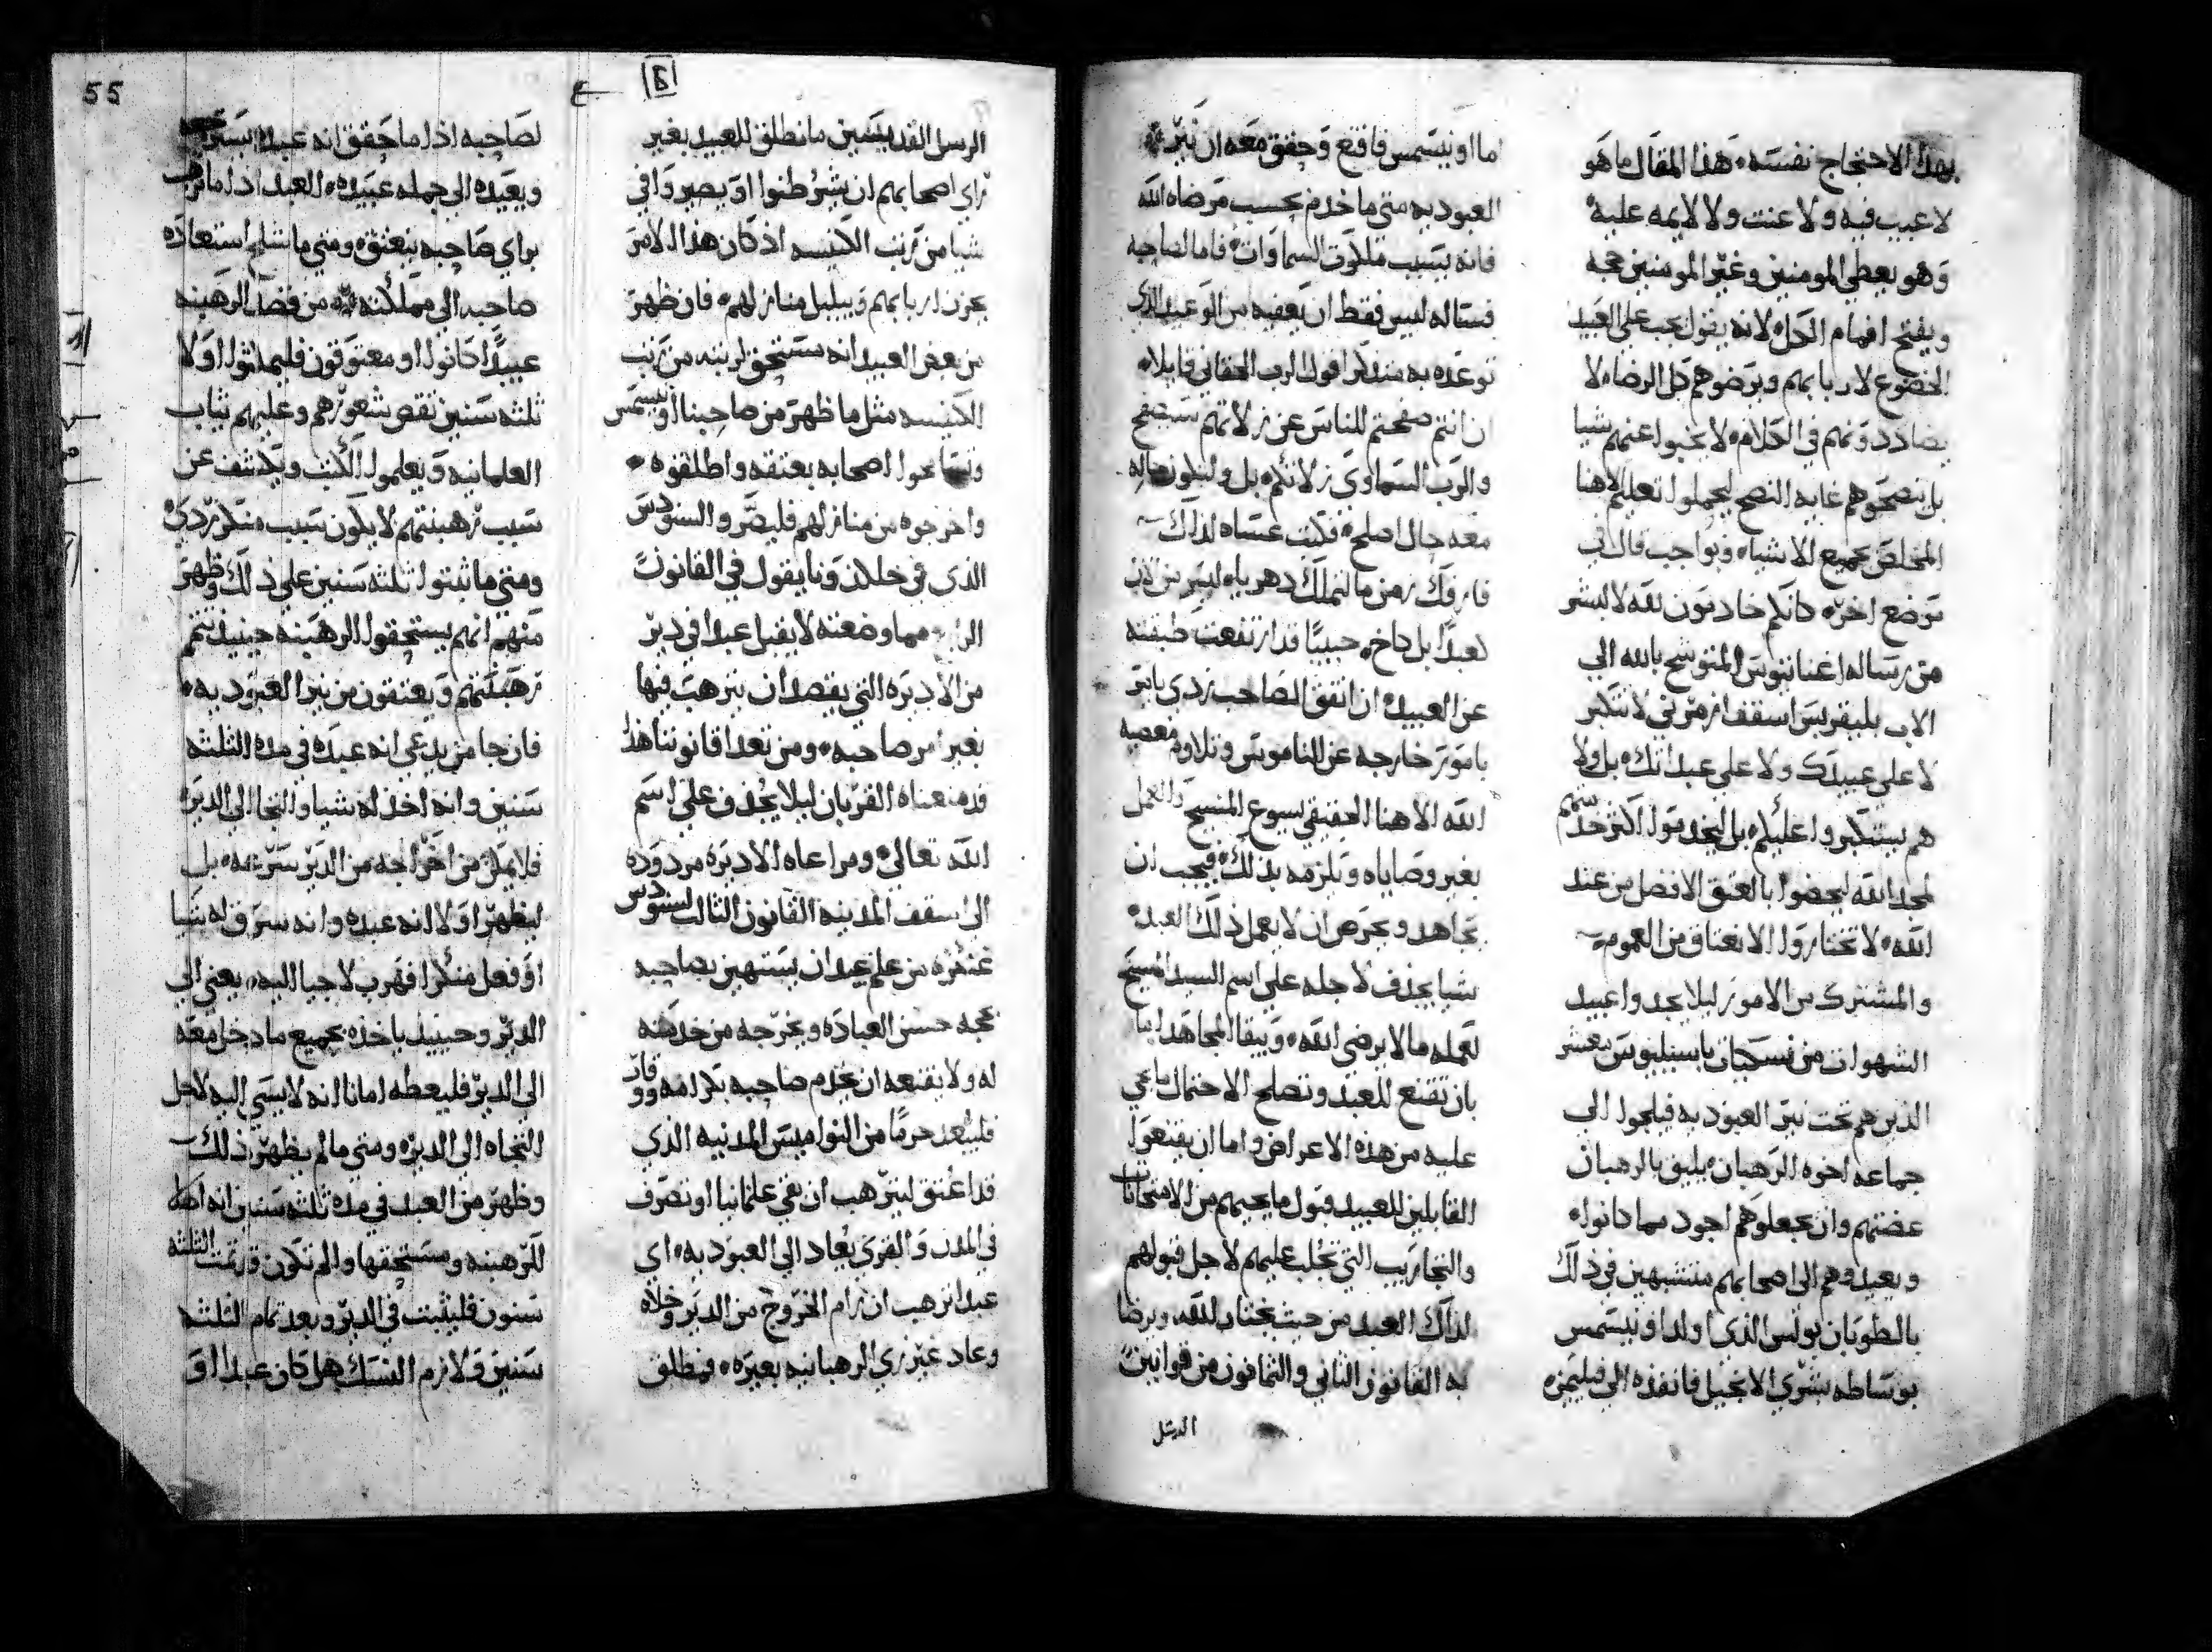 بهذا الاحتجاج نفسه، هذا المقال ما هو
لا عيب فيه ولا عنت ولا لايمه عليه
وهو يعطي المومنين وغير المومنين حجه
ويفتح افمام الكل لانه يقول يجب على العبيد
الخضوع لاربابهم ويرضوهم كل الرضا، لا
يضاددونهم في الكلام، لا يخبوا عنهم شيا
بل ينصحوهم غايه النصح ليجملوا تعليم الاهنا
المخلص جميع الاشيا، وبواجب قال في
توضع اخر، كانكم خادمون لله لا لبشر
من رساله اغناتيوس المتوشح بالله الي
الاب بليقربس اسقف ازمرني لا تتكبر
لا على عبيدك ولا على عبداتك، بل ولا
هم يتكبروا عليكم، بل ليخدموا اكثر خدمتهم
لمجد الله ليحضوا بالعتق الافضل من عند
الله، لا تختاروا الانعتاق من العموم
والمشترك من الامور ليلا يجدوا عبيد
الشهوات من نسكيات باسيليوس معشر
الذين هم تحت نير العبوديه فيلجوا الى
جماعه اخوه الرهبان، يليق بالرهبان
عضتهم وان يجعلوهم اجود مما كانوا،
ويعيدوهم الى اصحابهم متشبهين في ذلك
بالطوبان بولس الذي اولد اونيسمس
بوساطه بشرى الانجيل فانفذه الى فيليمن،
اما اونيسمس فاقنع وحقق معه ان نير
العبوديه متى ما خدم بحسب مرضاه الله
فانه يسبب ملكوت السماوات، فاما لصاحبه
فساله ليس فقط ان يعفيه من الوعيد الذي
توعده به متذكرا قول الرب الحقاني قايلا،
ان انتم صفحتم للناس عن زلاتهم سيصفح
والرب السماوي زلاتكم، بل وليكون حاله
معه حال اصلح، فكتب عساه لذلك
فارقك زمن ما لتملك دهريا، ليس من الان
كعبد، بل كاخ، حبيبا قد ارتفعت طبقته
عن العبيد، ان اتفق الصاحب ردي يامر
بامور خارجه عن الناموس وتلاوم معصيه
الله الاهنا الحقيقي يسوع المسيح والعمل
بغير وصاياه وتلزمه بذلك، فيجب ان
تجاهد وتحرص ان لا يعمل ذلك العبد
شيا يجذف لاجله على اسم السيد المسيح
لعمله ما لا يرضي الله، ويبقا المجاهد اما
بان تقنع للعبد وتصلح الاحتمال ما يجي
عليه من هذه الاعراض واما ان يقنعوا
القابلين للعبيد قبول ما يجيهم من الامتحانات
والتجاريب التي تجلب عليهم لاجل قبولهم
لذلك العبد من حيث يختار لله، ويرضا
به القانون الثاني والثمانون من قوانين
الرسل
الرسل القديسين ما نطلق للعبيد بغير
راي اصحابهم ان يشرطنوا او يصيروا في
شيا من رتب الكنيسه اذ كان هذا الامر
يحزن اربابهم ويبلبل منازلهم، فان ظهر
من بعض العبيد انه مستحق لرتبه من رتب
الكنيسه مثل ما ظهر من صاحبنا اونيسمس
وتسامحوا اصحابه بعتقه واطلقوه
واخرجوه من منازلهم فليصر والسنودس
الذي في خلكدونا يقول في القانون
الرابع مما وضعته لا يقبل عبدا في دير
من الاديره التي يقصد ان يترهب فيها
بغير امر صاحبه، ومن تعدا قانوننا هذا
قد منعناه القربان ليلا يجذف على اسم
الله تعالى، ومراعاه الاديره مردوده
الى اسقف المدينه القانون الثالث لسنودس
غنغره من علم عبدا ان يستهين بصاحبه
بحجه حسن العباده ويخرجه من خدمته
له ولا يقنعه ان يخدم صاحبه بكرامه ووقار
فليبعد حرما من النواميس المدنيه الذي
قد اعتق ليترهب ان بقي علمانيا او تصرف
في المدن والقرى يعاد الى العبوديه، اي
عبدا ترهب ان رام الخروج من الدير وخلاه
وعاد غير زي الرهبانيه بغيره، فمطلق
لصاحبه اذا ما حقق انه عبده يسترجعه
ويعيده الى جمله عبيده، العبد اذا ما ترهب
براي صاحبه ينعتق، ومتى ما شلح استعاده
صاحبه الى مملكته من فصل الرهبنه
عبيدا كانوا او معتوقون فليمهلوا اولا
ثلثه سنين تقص شعورهم وعليهم ثياب
العلمانيه ويعلموا الكتب ويكشف عن
سبب رهبنتهم لا يكون سبب منكر ردي،
ومتى ما ثبتوا ثلثه سنين على ذلك وظهر
منهم انهم يستحقوا الرهبنه حينيذ تتم
رهبنتهم ويعتقون من نير العبوديه،
فان جا من يدعي انه عبده في مده الثلثه
سنين وانه اخذ له شيا والتجا الى الدير،
فلا يمكن من اخراجه من الدير سرعه، بل
ليظهر اولا انه عبده وانه سرق له شيا
او فعل منكرا فهرب لاجيا اليه، يعني الى
الدير وحينيذ ياخذه بجميع ما دخل معه
الى الدير فليعطه امانا انه لا يسي اليه لاجل
التجاه الى الدير، ومتى ما لم يظهر ذلك
وظهر من العبد في مده ثلثه سنين انه اهلا
للرهبنه ومستحقها وان لم تكون قد تمت الثلثه
سنون فليثبت في الدير وبعد تمام الثلثه
سنين ولازم النسك هل كان عبدا او
55